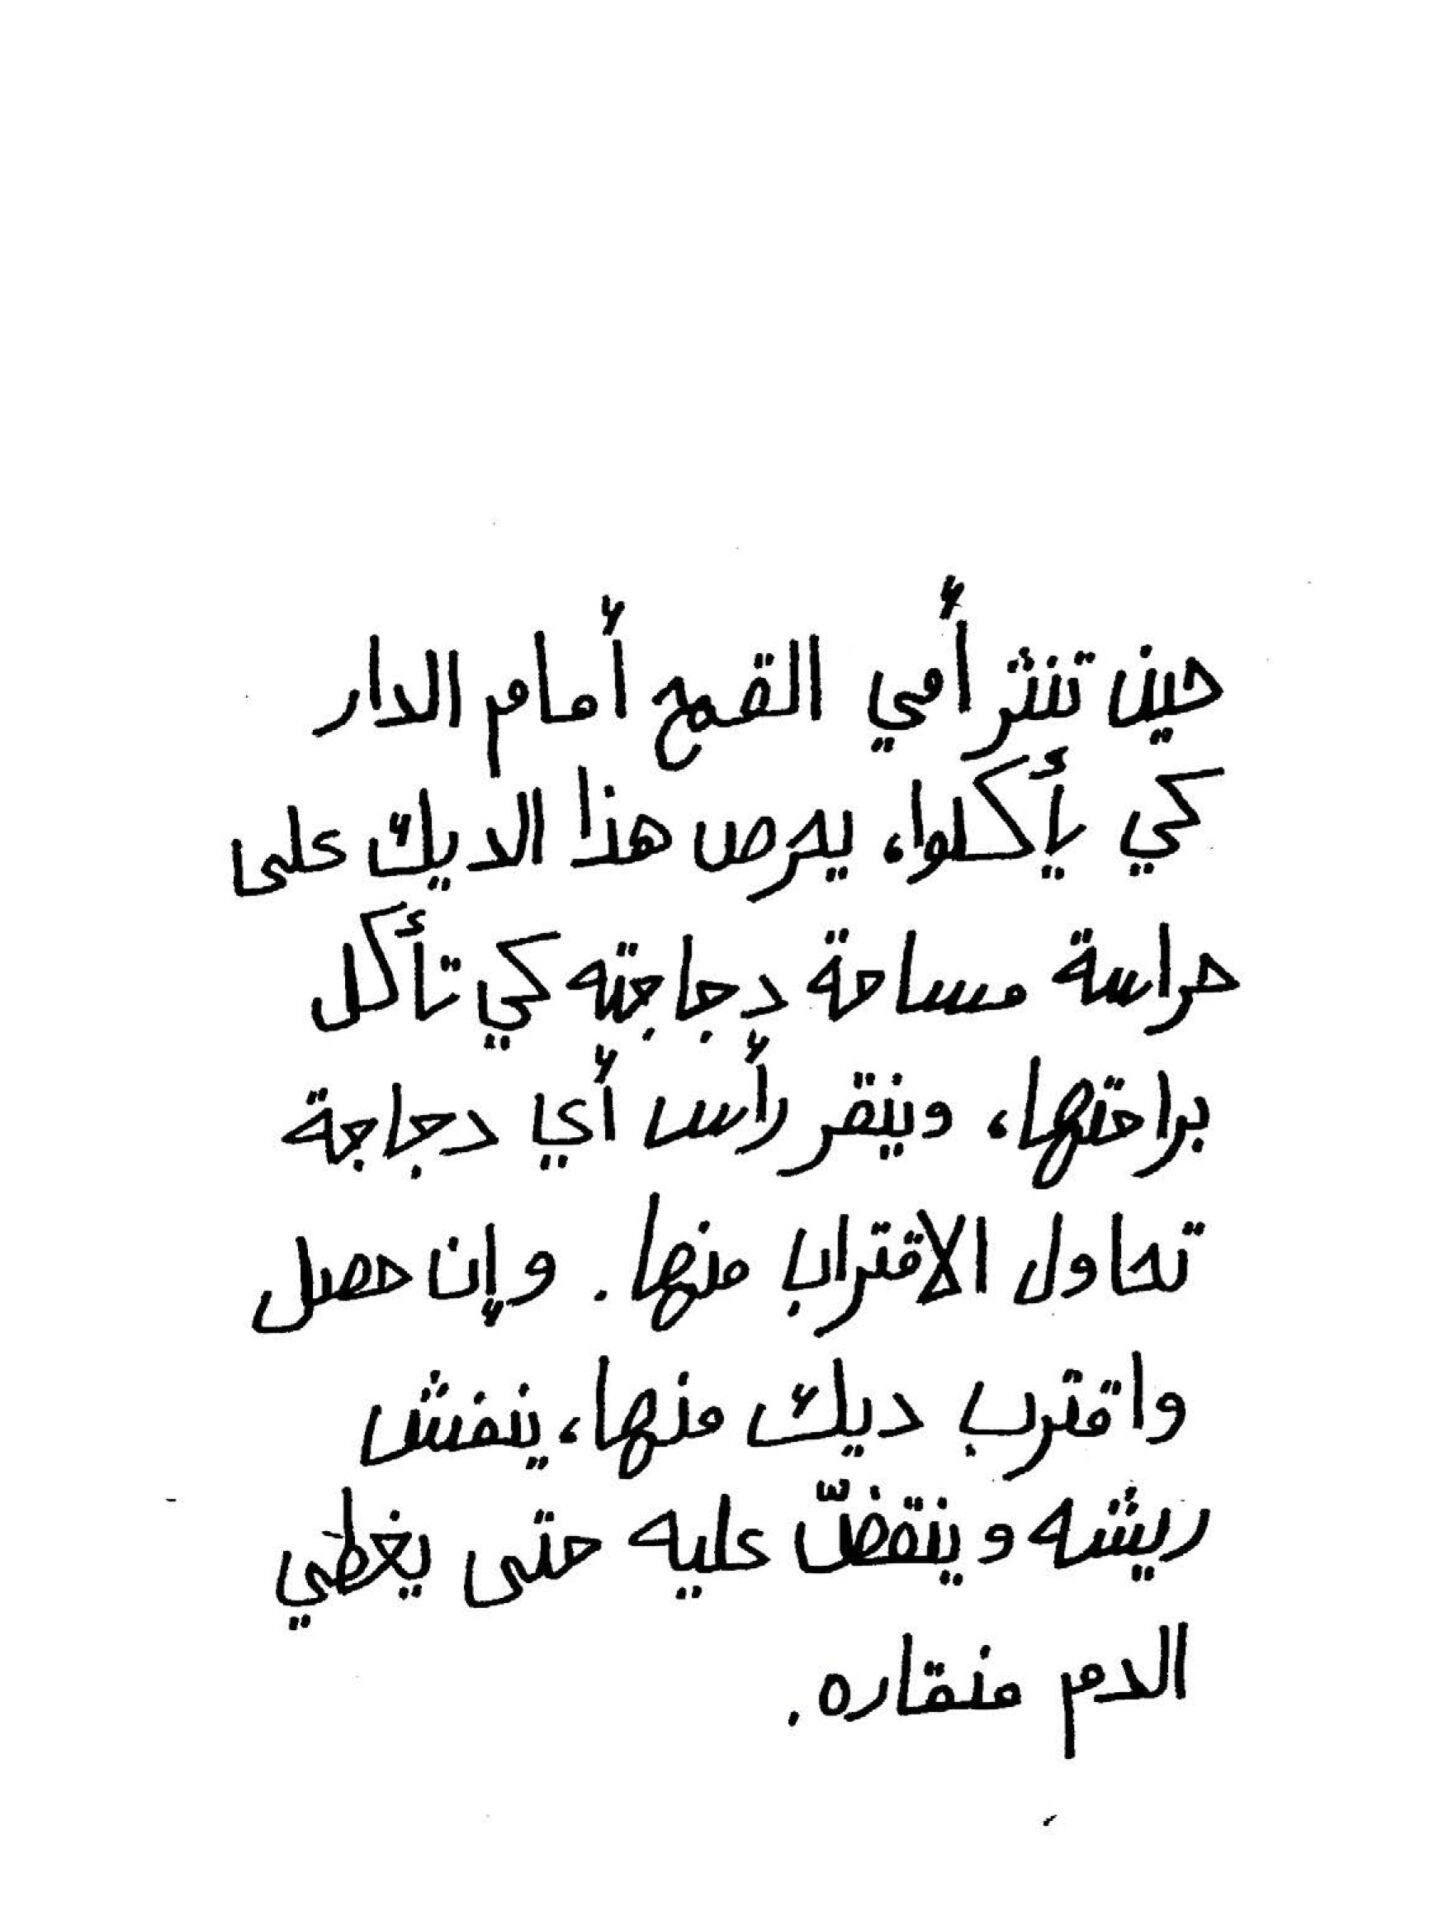 حين تنثر أمي القمح أمام الدار
كي يأكلوا، يحرص هذا الديك على
حراسة مساحة دجاجته كي تأكل
براحتها، وينقر رأس أي دجاجة
تحاول الاقتراب منها. وإن حصل
واقترب ديك منها، ينفش
ريشه وينقضّ عليه حتى يغطي
الدم منقاره.